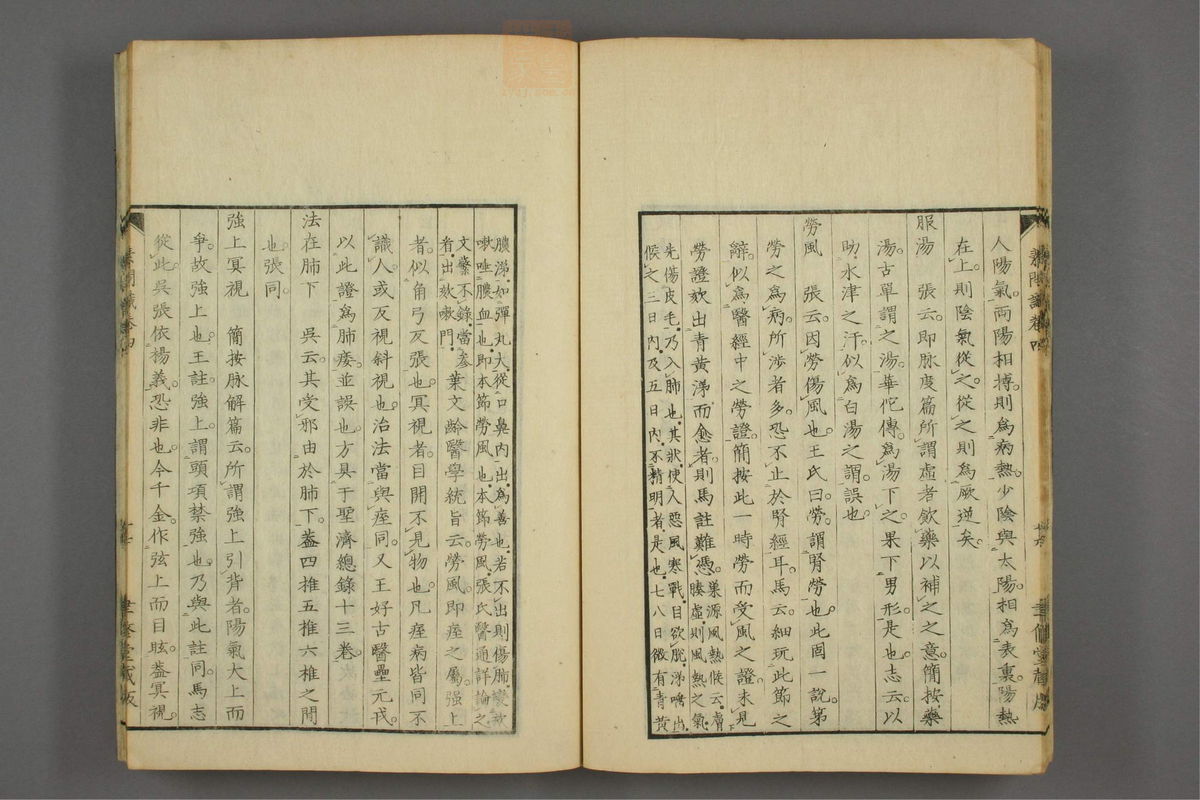 人陽氣。両陽相搏。則爲病熱。少陰與太陽。相爲表裏。陽熱
在上。則陰氣從之。從之則爲厥逆矣。
服湯　張云。即脉度篇所謂虛者飲藥以補之之意。簡按藥
湯。古單謂之湯。華佗傳。爲湯下之。果下男形。是也。志云。以
助水津之汗。似爲白湯之謂。誤也。
勞風　張云。因勞傷風也。王氏曰。勞。謂腎勞也。此固一說。第
勞之爲病。所涉者多。恐不止於腎經耳。馬云。細玩此節之
辭。似爲醫經中之勞證。簡按此一時勞而受風之證。未見
勞證欬出青黃涕而愈者。則馬註難憑。巢源風熱候云。膚
腠虛。則風熱之氣。
先傷皮毛。乃入肺也。其狀使人惡風寒戰。目欲脫。涕唾出。
候之三日内。及五日内。不精明者是也。七八日微有青黃
膿涕。如彈丸大。從口鼻内出。爲善也。若不出則傷肺。變欬
嗽唾膿血也。即本節勞風也。本節勞風。張氏醫通詳論之。
文繁不錄。當參
看。出欬嗽門。
葉文齡醫學統旨云。勞風。即痓之屬。强上
者。似角弓反張也。冥視者。目開不見物也。凡痓病皆同不
識人。或反視斜視也。治法當與痓同。又王好古醫壘元戎。
以此證爲肺痿。並誤也。方具于聖濟總錄十三卷。
法在肺下　吳云。其受邪由於肺下。蓋四椎五椎六椎之間
也。張同。
強上冥視　簡按脉解篇云。所謂強上引背者。陽氣大上而
爭。故強上也。王註。強上。謂頭項禁強也。乃與此註同。馬志
從此。吳張依楊義。恐非也。今千金。作弦上而目眩。蓋冥視。
素問識卷四
聿修堂藏板